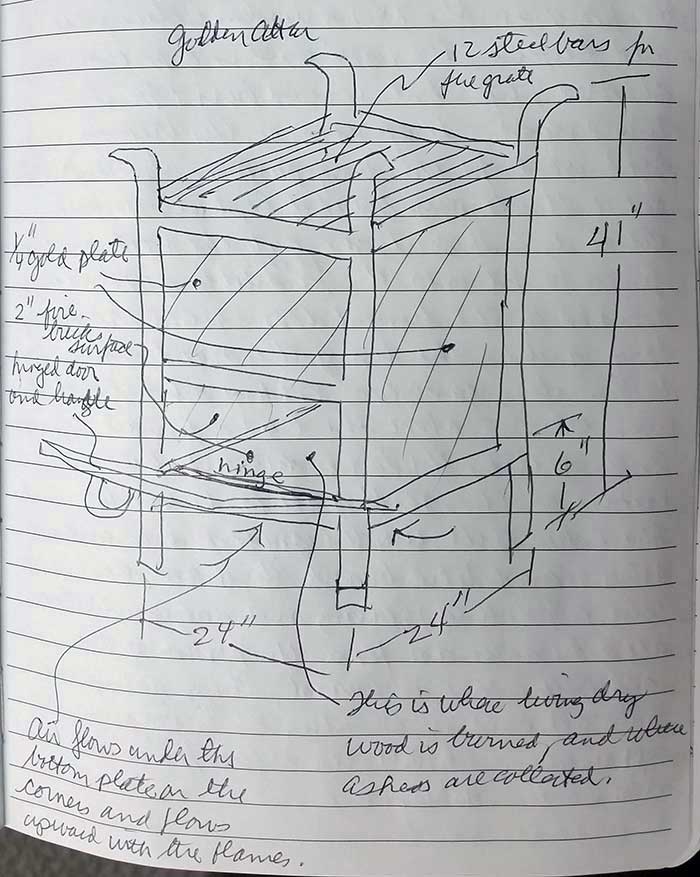 Golden Altar
12 steel bars for
the grate
41"
1/4" gold plate
2" fire-
brick
surface
hinged door
and handle
hinge
6"
24"
24"
Air flows under the
bottom plate on the
corners and flows
upward with the flames.
This is where living dry
wood is burned, and where
ashes are collected.